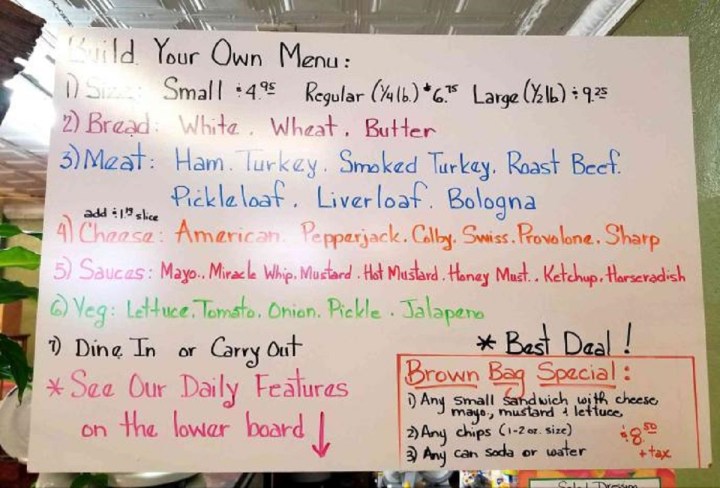 Build Your Own Menu:
1) Size: Small $4.95 Regular (1/4 lb.) $6.75 Large (1/2 lb) $9.25
2) Bread: White. Wheat. Butter
3) Meat: Ham. Turkey. Smoked Turkey. Roast Beef.
Pickleloaf. Liverloaf. Bologna
add $1.19 slice
4) Cheese: American. Pepperjack. Colby. Swiss. Provolone. Sharp
5) Sauces: Mayo.. Miracle Whip. Mustard. Hot Mustard. Honey Must.. Ketchup. Horseradish
6) Veg: Lettuce. Tomato. Onion. Pickle. Jalapeno
7) Dine In or Carry Out
* See Our Daily Features
on the lower board ↓
* Best Deal!
Brown Bag Special:
1) Any small sandwich with cheese
mayo., mustard & lettuce,
2) Any chips (1-2 oz. size)
3) Any can soda or water
$8.50
+ tax
Salad Dressing